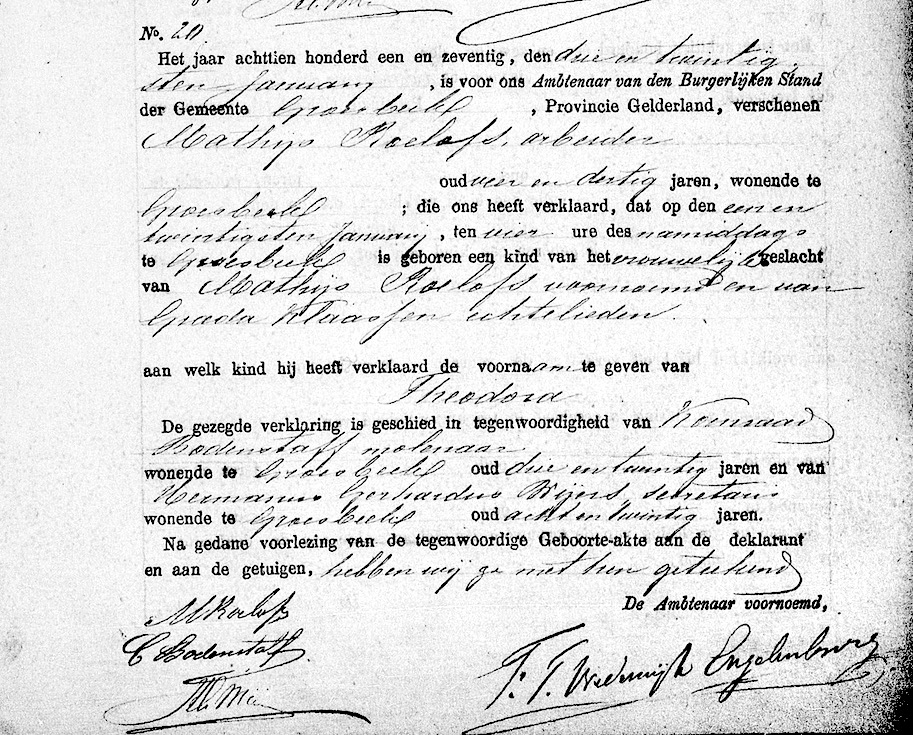 No. 20.
Het jaar achttien honderd een en zeventig, den drie en twintig
sten January, is voor ons Ambtenaar van den Burgerlijken Stand
der Gemeente Groesbeek, Provincie Gelderland, verschenen
Mathijs Roelofs, arbeider
oud vier en dertig jaren, wonende te
Groesbeek; die ons heeft verklaard, dat op den een en
twintigsten January, ten vier ure des namiddags
te Groesbeek is geboren een kind van het vrouwelijk geslacht
van Mathijs Roelofs voornoemd en van
Grada Klaassen echtelieden.
aan welk kind hij heeft verklaard de voornaam te geven van
Theodora
De gezegde verklaring is geschied in tegenwoordigheid van Koenraad
Bodenstaff molenaar
wonende te Groesbeek oud drie en twintig jaren en van
Hermanus Gerhardus Wijers, secretaris
wonende te Groesbeek oud acht en twintig jaren.
Na gedane voorlezing van de tegenwoordige Geboorte-akte aan de deklarant
en aan de getuigen, hebben wij ze met hen geteekend
De Ambtenaar voornoemd,
M Roelofs
C Bodenstaff
Engelenburg